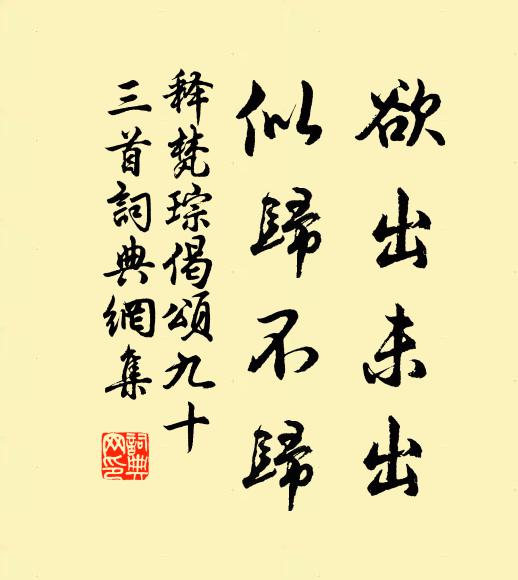 欲出未出
似歸不歸
释梵琮偈頌九十
三首詞典網集
詞典网印